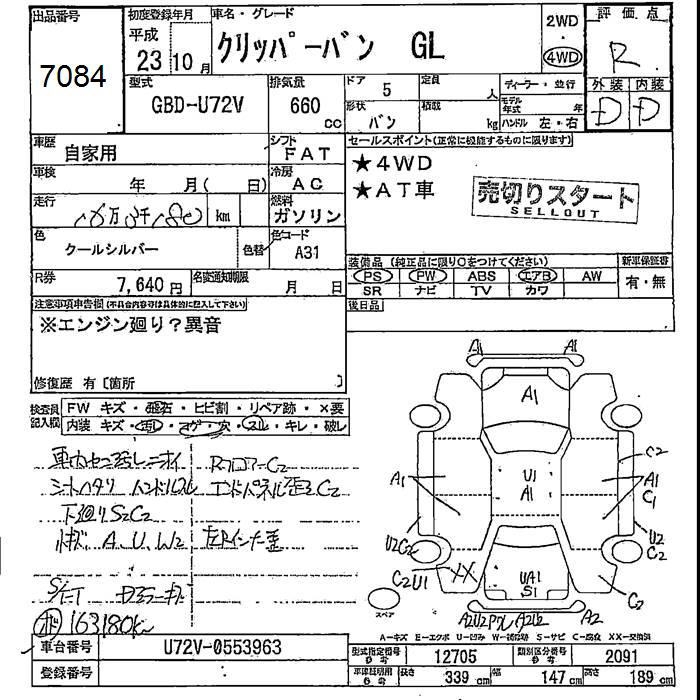 出品番号
7084
初度登録年月
平成
23 10月
車名・グレード
クリッパーバン GL
2WD
4WD
評価点
R
外装 内装
D D
型式
GBD-U72V
排気量
660
cc
ドア
5
定員
人
形状
バン
積載
kg
ディーラー・並行
モデル年式
年
ハンドル 左・右
車歴
自家用
シフト
FAT
車検
年 月( 日)
冷房
AC
走行
km
燃料
ガソリン
色
クールシルバー
色替
色コード
A31
R券
7,640円
名変通知期限
月 日
セールスポイント(正常に機能するものに限ります)
★4WD
★AT車
売切りスタート
SELLOUT
装備品 (純正品に限り○をつけてください)
新車保証書
PS PW ABS エアB AW
SR ナビ TV カワ
有・無
後日品
注意事項申告欄(不具合内容等は具体的に記入して下さい)
※エンジン廻り?異音
修復歴 有〔箇所 〕
検査員記入欄
FW キズ・飛石・ヒビ割・リペア跡・×要
内装 キズ・汚レ・コゲ・穴・スレ・キレ・破レ
RフロアーC2
シートヘタリ ハンドルスレ エンドパネル歪ミC2
下廻りS2C2
A、U、W2
163180k
A1 A1
A1
U1
A1
A1
C2
A1
C1
U2C2
U2
C2
C2U1
XX
UA1
S1
C2
A2
スペア
A=キズ E=エクボ U=凹み W=補修跡 S=サビ C=腐食 XX=交換済
車台番号
U72V-0553963
登録番号
型式指定番号
参考
12705
類別区分番号
参考
2091
車庫証明用
参考
長さ
339 cm
幅
147 cm
高さ
189 cm